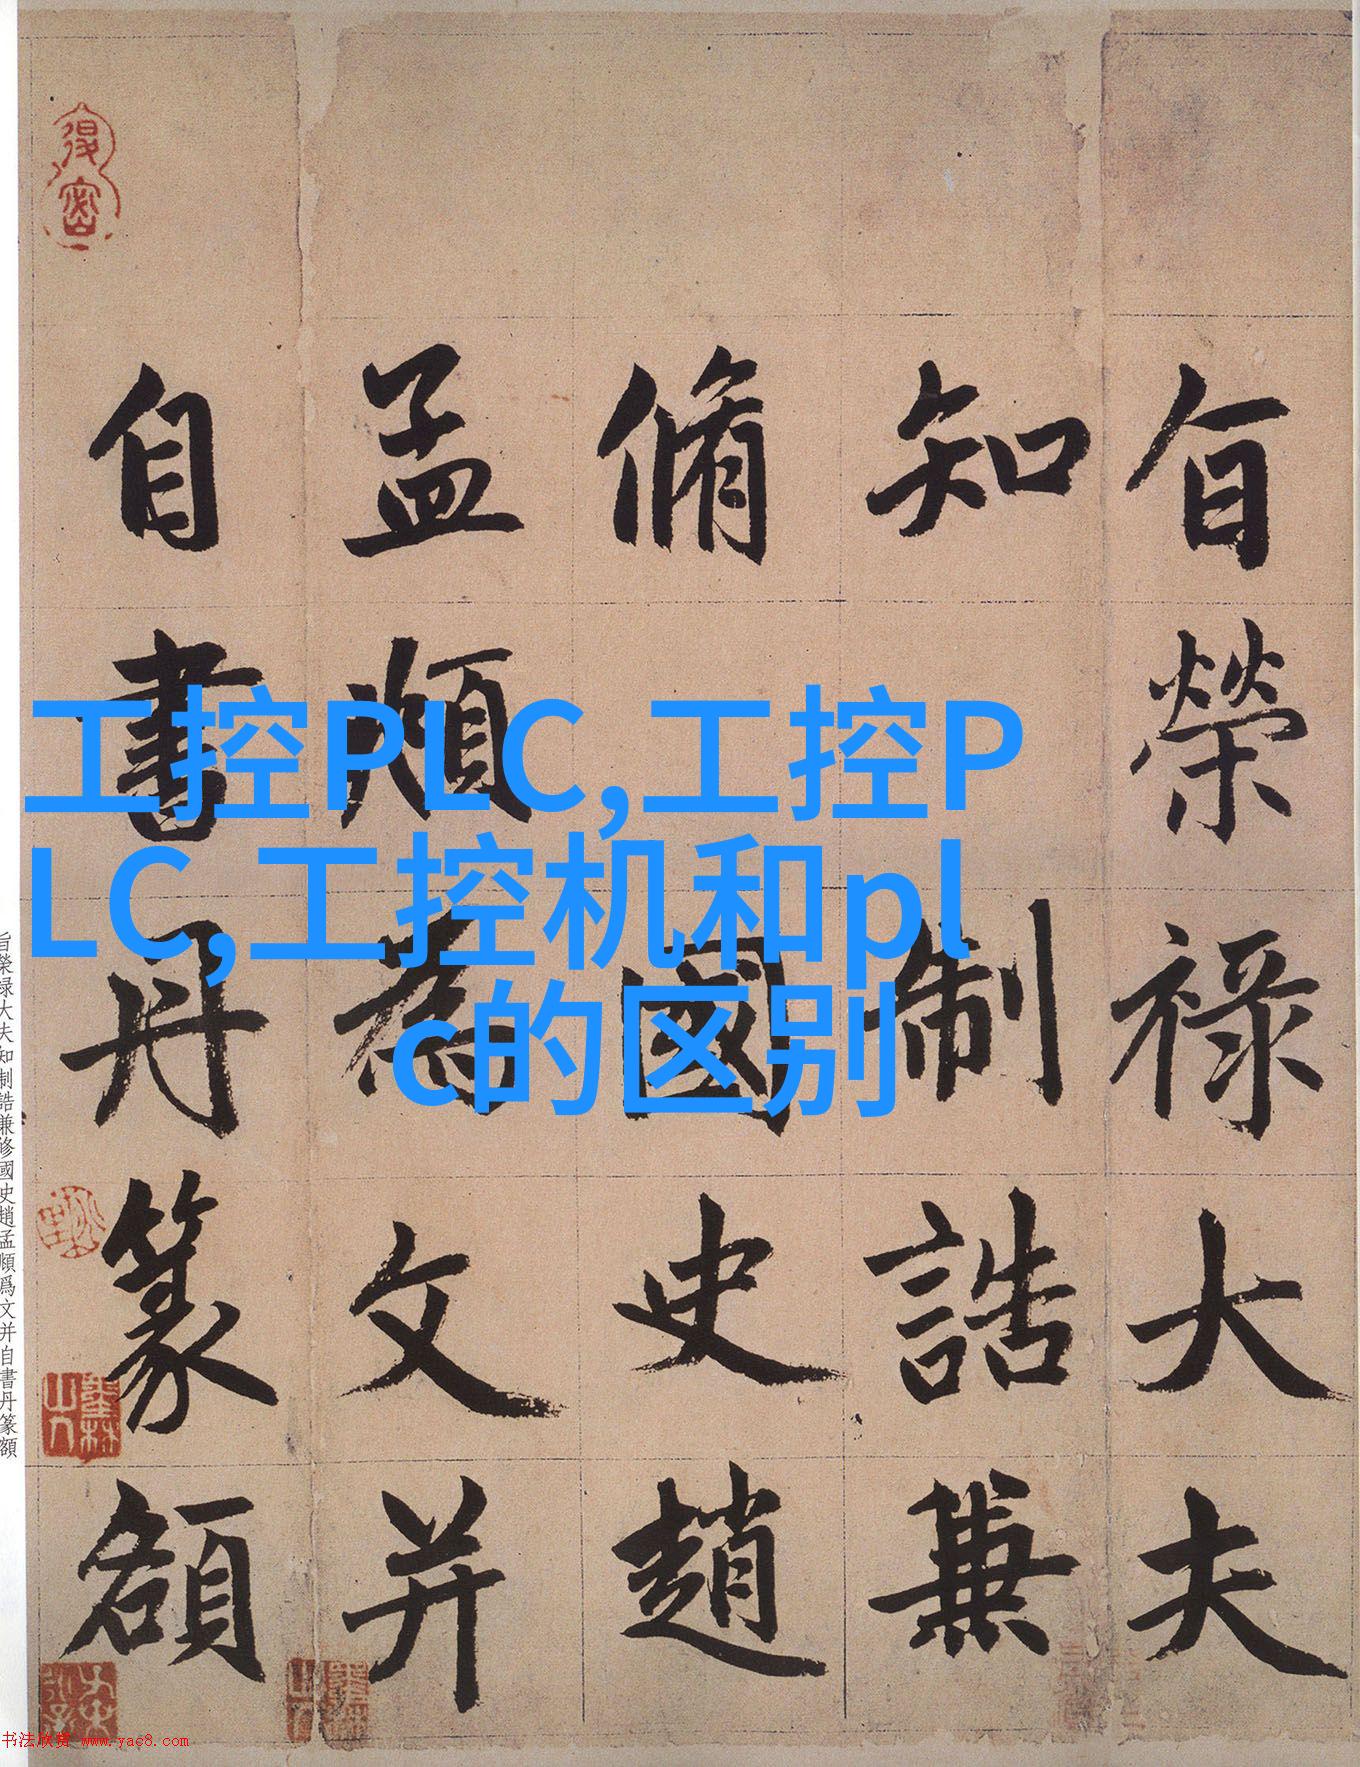 工控PLC,工控P
LC,工控机和pl
c的区别
旨榮祿大夫
知制誥兼
脩國史趙
孟頫為文并
自書丹篆額
旨榮禄大夫知制誥兼修國史趙孟頫爲文并自書丹篆額
书法欣赏 www.yac8.com